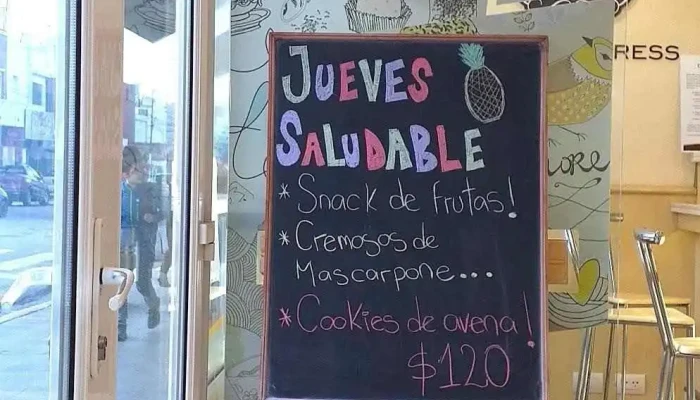 JUEVES
SALUDABLE
* Snack de frutas!
* Cremosos de
Mascarpone...
* Cookies de avena!
$120
RESS